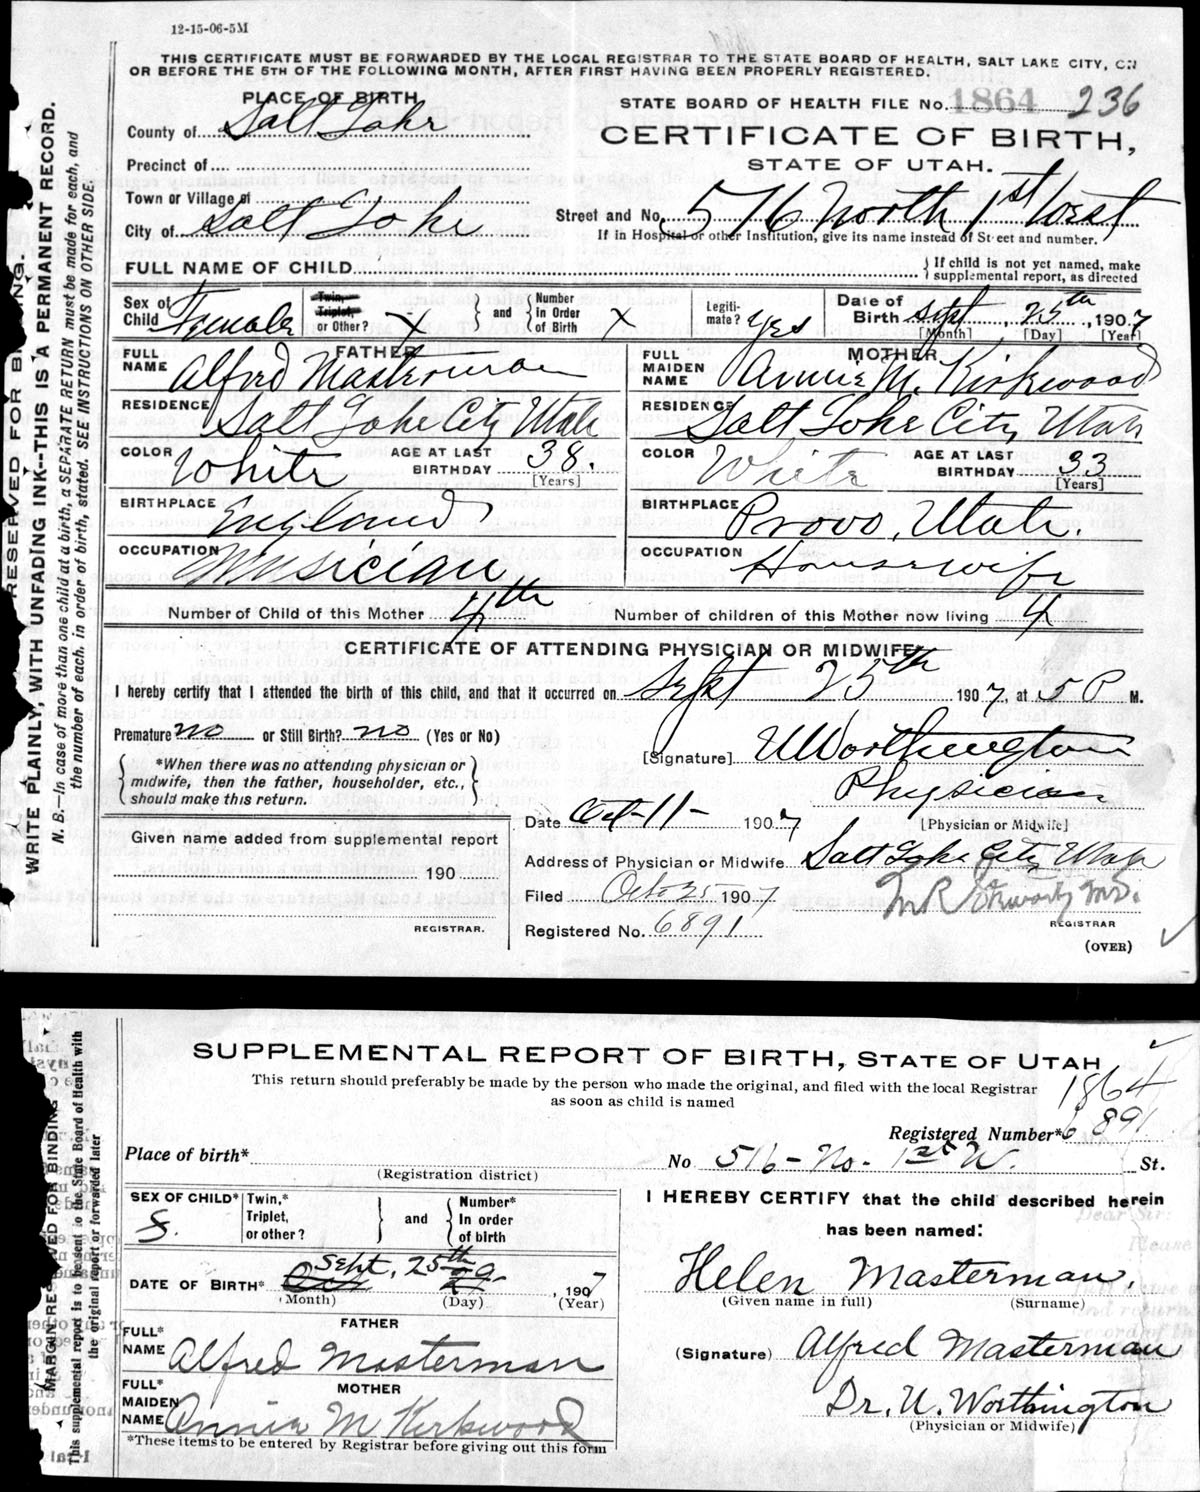 12-15-06-5M
THIS CERTIFICATE MUST BE FORWARDED BY THE LOCAL REGISTRAR TO THE STATE BOARD OF HEALTH, SALT LAKE CITY, ON
OR BEFORE THE 5TH OF THE FOLLOWING MONTH, AFTER FIRST HAVING BEEN PROPERLY REGISTERED.
PLACE OF BIRTH
STATE BOARD OF HEALTH FILE No. 1864 236
County of Salt Lake
CERTIFICATE OF BIRTH,
STATE OF UTAH.
Precinct of
Town or Village of
City of Salt Lake
Street and No. 576 North 1st West
If in Hospital or other Institution, give its name instead of Street and number.
FULL NAME OF CHILD
If child is not yet named, make
supplemental report, as directed
Sex of Child Female
Twin, Triplet, or Other? X
and
Number in Order of Birth X
Legitimate? Yes
Date of Birth Sept, 25th, 1907
[Month] [Day] [Year]
FATHER
FULL NAME Alfred Masterman
MOTHER
FULL MAIDEN NAME Annie M. Kirkwood
RESIDENCE Salt Lake City Utah
RESIDENCE Salt Lake City, Utah
COLOR White
AGE AT LAST BIRTHDAY 38. [Years]
COLOR White
AGE AT LAST BIRTHDAY 33 [Years]
BIRTHPLACE England
BIRTHPLACE Provo, Utah.
OCCUPATION Musician
OCCUPATION Housewife
Number of Child of this Mother 4th
Number of children of this Mother now living 4
CERTIFICATE OF ATTENDING PHYSICIAN OR MIDWIFE
I hereby certify that I attended the birth of this child, and that it occurred on Sept 25th 1907, at 5 P M.
Premature? no or Still Birth? no (Yes or No)
[Signature] U Worthington
*When there was no attending physician or
midwife, then the father, householder, etc.,
should make this return.
Physician
[Physician or Midwife]
Date Oct-11- 1907
Given name added from supplemental report
190
REGISTRAR.
Address of Physician or Midwife Salt Lake City, Utah
Filed Oct 25 1907
M R Stewart, M.D.
REGISTRAR
Registered No. 6891
(OVER)
RESERVED FOR BINDING.
WRITE PLAINLY, WITH UNFADING INK--THIS IS A PERMANENT RECORD.
N. B.—In case of more than one child at a birth, a SEPARATE RETURN must be made for each, and
the number of each, in order of birth, stated. SEE INSTRUCTIONS ON OTHER SIDE.
SUPPLEMENTAL REPORT OF BIRTH, STATE OF UTAH
This return should preferably be made by the person who made the original, and filed with the local Registrar
as soon as child is named
1864
Registered Number* 6891
Place of birth*
(Registration district)
No 516-No. 1st W. St.
SEX OF CHILD* f.
Twin,* Triplet, or other?
and
Number* In order of birth
I HEREBY CERTIFY that the child described herein
has been named:
DATE OF BIRTH* Oct Sept. 25th 1907
(Month) (Day) (Year)
Helen Masterman,
(Given name in full) (Surname)
FATHER
FULL* NAME Alfred Masterman
(Signature) Alfred Masterman
MOTHER
FULL* MAIDEN NAME Annie M Kirkwood
Dr. U. Worthington
(Physician or Midwife)
*These items to be entered by Registrar before giving out this form
MARGIN RESERVED FOR BINDING
This supplemental report is to be sent to the State Board of Health with
the original report or forwarded later